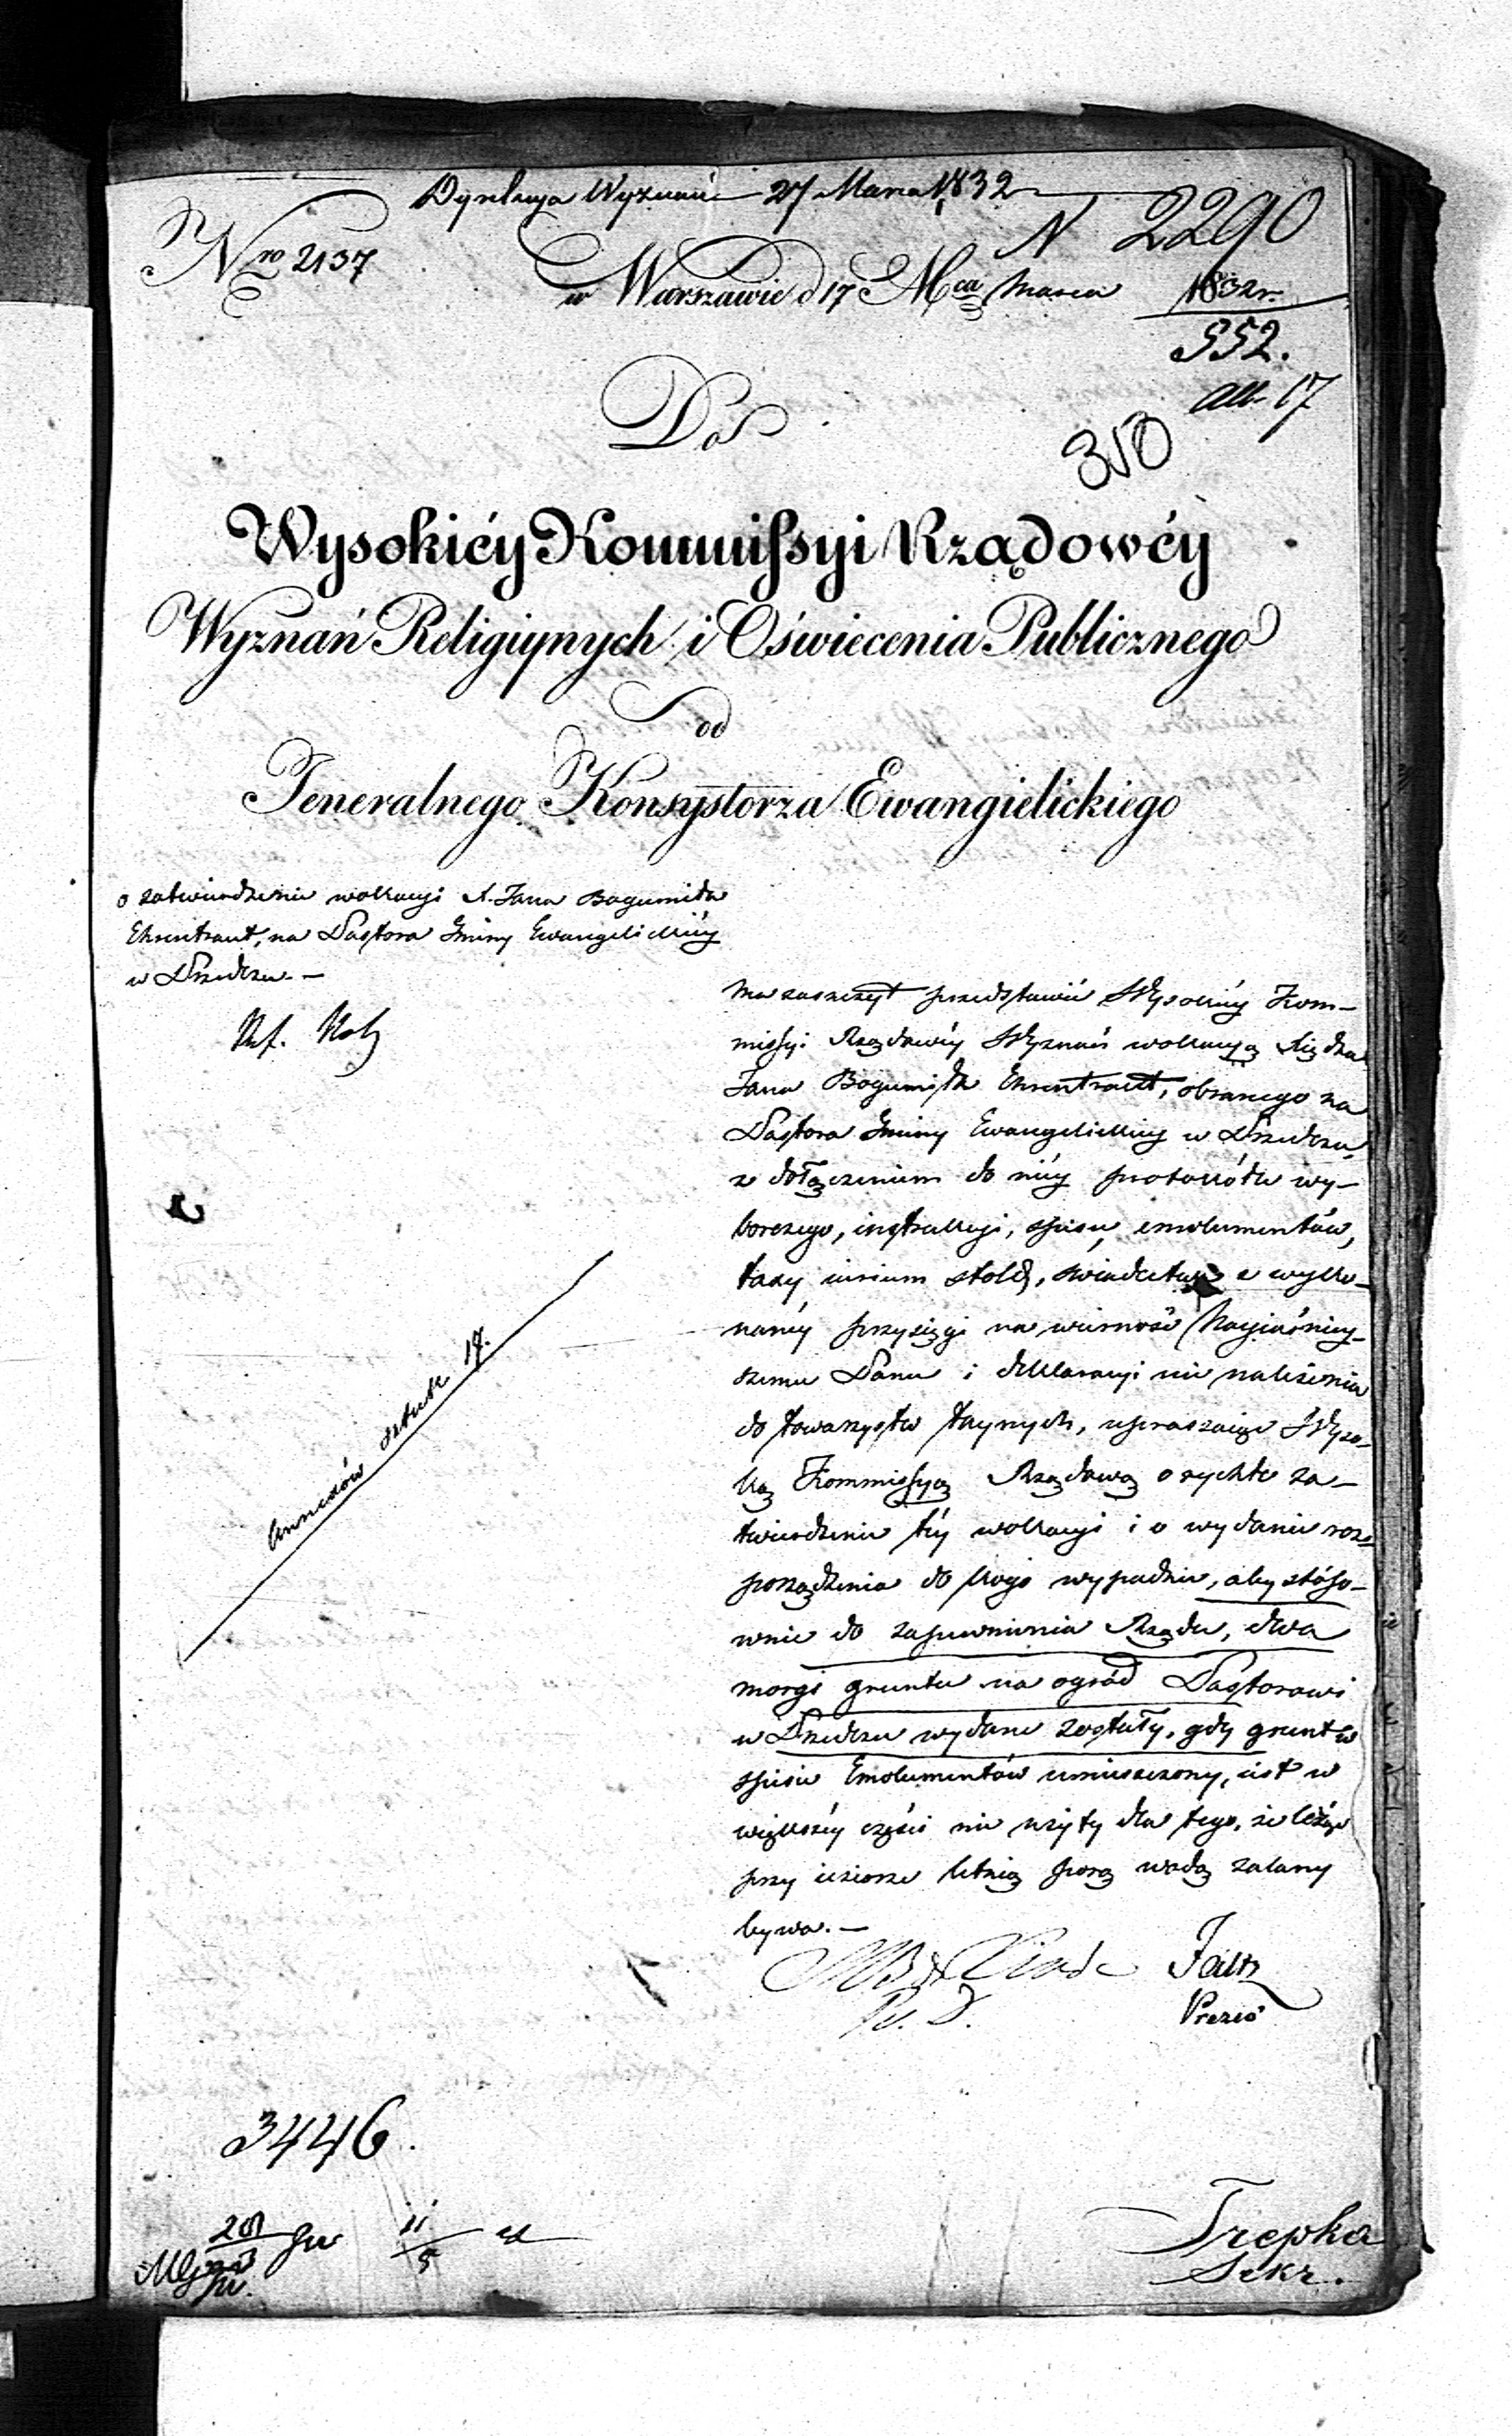 Dyrekcya Wyznań 27 Marca 1832
Nro 2137
N 2290
w Warszawie d 17 Mca Marca 1832 r.
552.
all. 17
310
Do
Wysokiéy Kommissyi Rządowéy
Wyznań Religiynych i Oświecenia Publicznego
od
Jeneralnego Konsystorza Ewangielickiego
o zatwierdzenie wokacyi X. Jana Bogumiła
Ehrentraut, na Pastora Gminy Ewangelickiéy
w Przedczu. —
Ref.
Ma zaszczyt przedstawić Wysokiéy Kom-
missyi Rządowéy Wyznań wokacyą Xiędza
Jana Bogumiła Ehrentraut, obranego na
Pastora Gminy Ewangelickiéy w Przedczu,
z dołączeniem do niéy protokółu wy-
borczego, instrukcyi, spisu emolumentów,
taxy iurium stolæ, świadectwa o wyko-
nanéy przysięgi na wierność Nayiaśniey-
szemu Panu i deklaracyi nie należenia
do towarzystw taynych, upraszaiąc Wyso-
ką Kommissyą Rządową o rychłe za-
twierdzenie téy wokacyi i o wydanie roz-
porządzenia do kogo wypadnie, aby stóso-
wnie do zapewnienia Rządu, dwa
morgi gruntu na ogród Pastorowi
w Przedczu wydane zostały, gdy grunt w
spisie Emolumentów umieszczony, iest w
większéy części nie użyty dla tego, że leżąc
przy ieziorze letnią porą wodą zalany
bywa. —
Annexów sztuk 17.
Prezes
3446.
11/5
Trepka
Sekr.